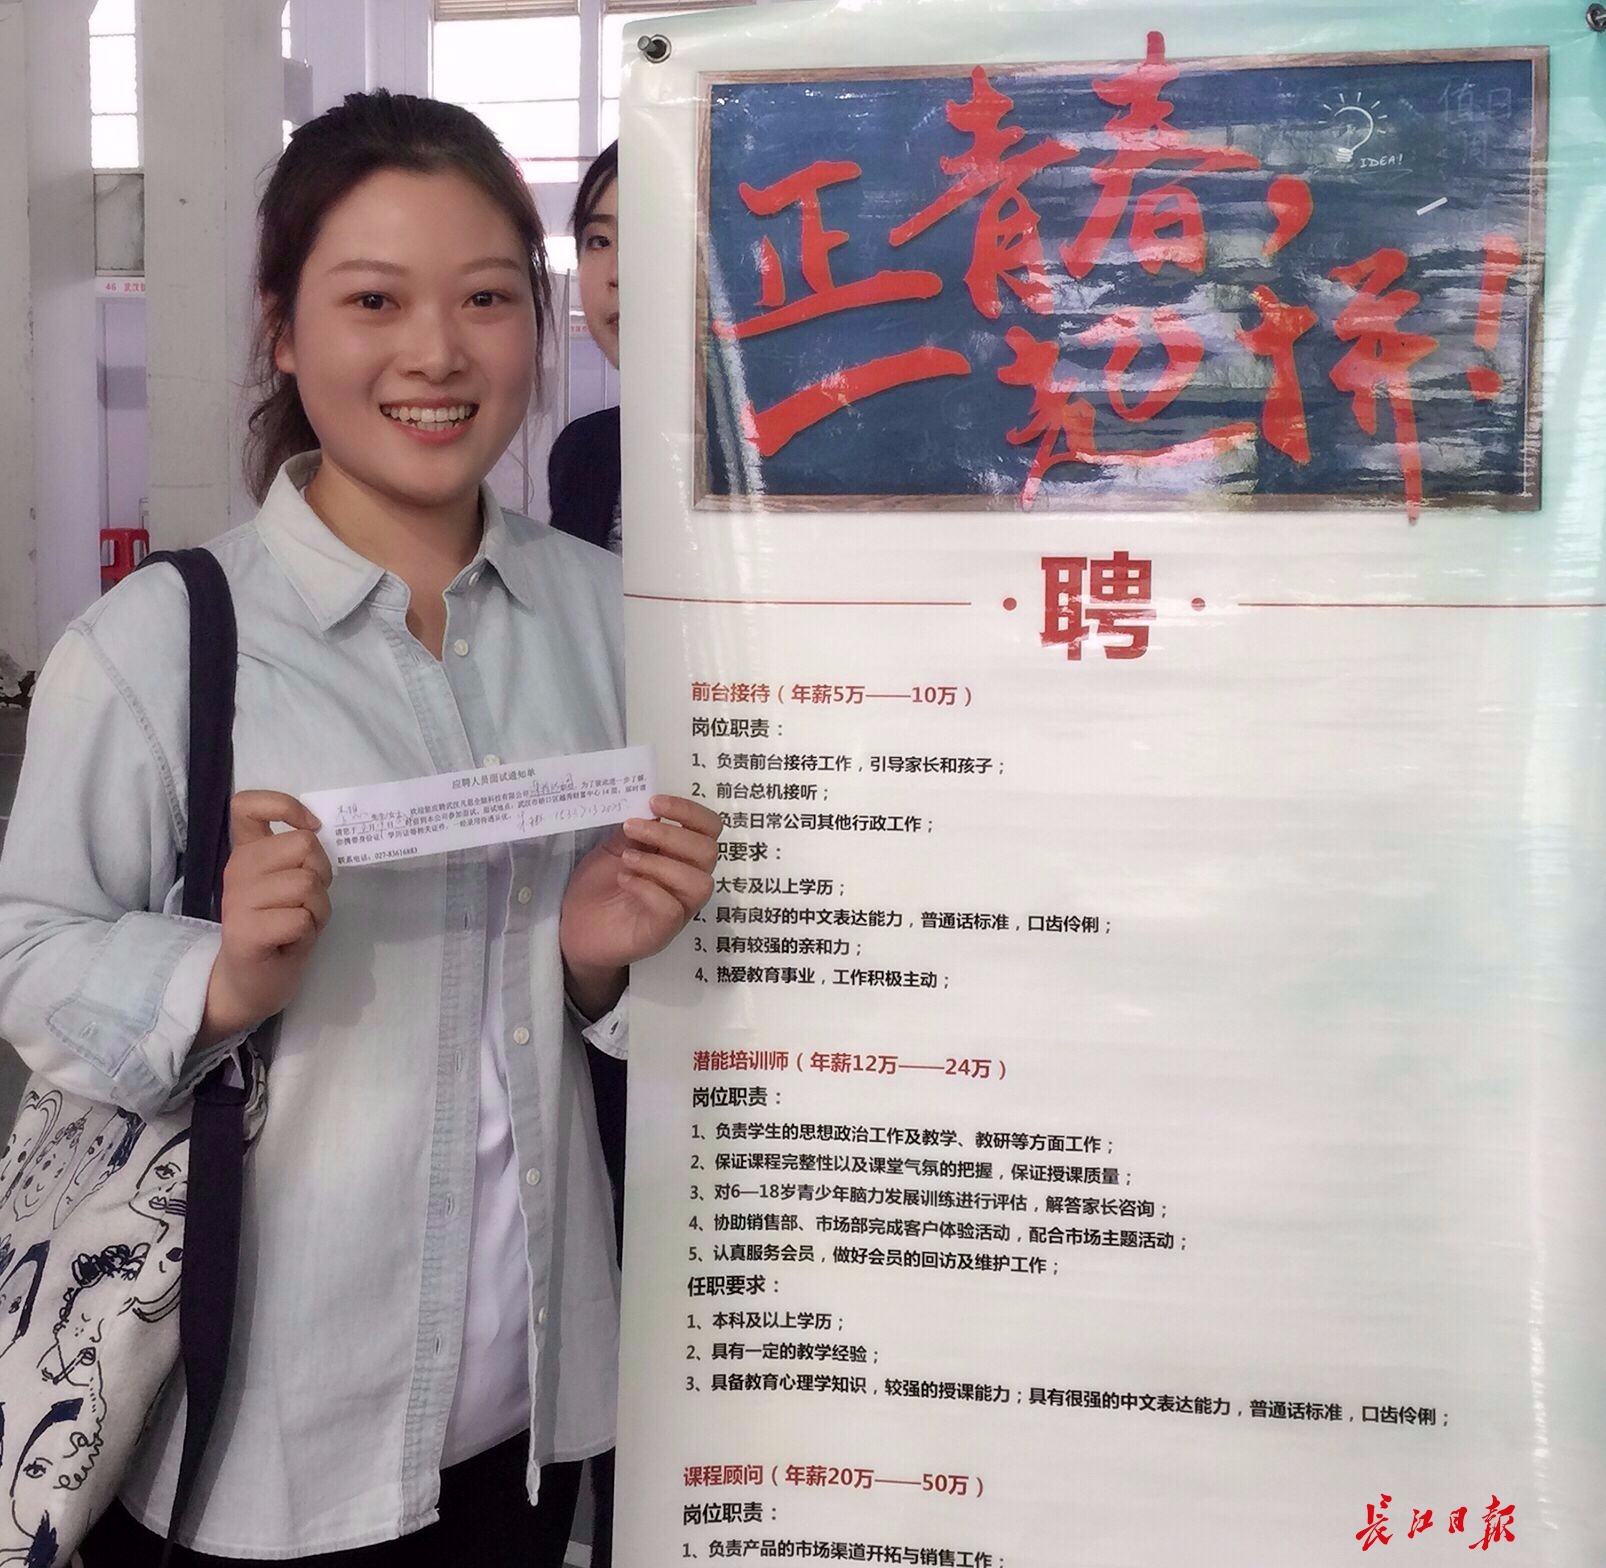 正青春，
一起拼！
IDEA!
值日
聘
前台接待（年薪5万——10万）
岗位职责：
1、负责前台接待工作，引导家长和孩子；
2、前台总机接听；
负责日常公司其他行政工作；
职要求：
大专及以上学历；
2、具有良好的中文表达能力，普通话标准，口齿伶俐；
3、具有较强的亲和力；
4、热爱教育事业，工作积极主动；
潜能培训师（年薪12万——24万）
岗位职责：
1、负责学生的思想政治工作及教学、教研等方面工作；
2、保证课程完整性以及课堂气氛的把握，保证授课质量；
3、对6—18岁青少年脑力发展训练进行评估，解答家长咨询；
4、协助销售部、市场部完成客户体验活动，配合市场主题活动；
5、认真服务会员，做好会员的回访及维护工作；
任职要求：
1、本科及以上学历；
2、具有一定的教学经验；
3、具备教育心理学知识，较强的授课能力；具有很强的中文表达能力，普通话标准，口齿伶俐；
课程顾问（年薪20万——50万）
岗位职责：
1、负责产品的市场渠道开拓与销售工作；
应聘人员面试通知单
先生/女士，欢迎您应聘武汉凡思全脑科技有限公司 为了彼此进一步了解，
请您于 月 日 时前到本公司参加面试。面试地点：武汉市硚口区越秀财富中心14层，届时请
你携带身份证、学历证等相关证件，一经录用待遇从优。
联系电话：027-83616883
46 武汉
长江日报